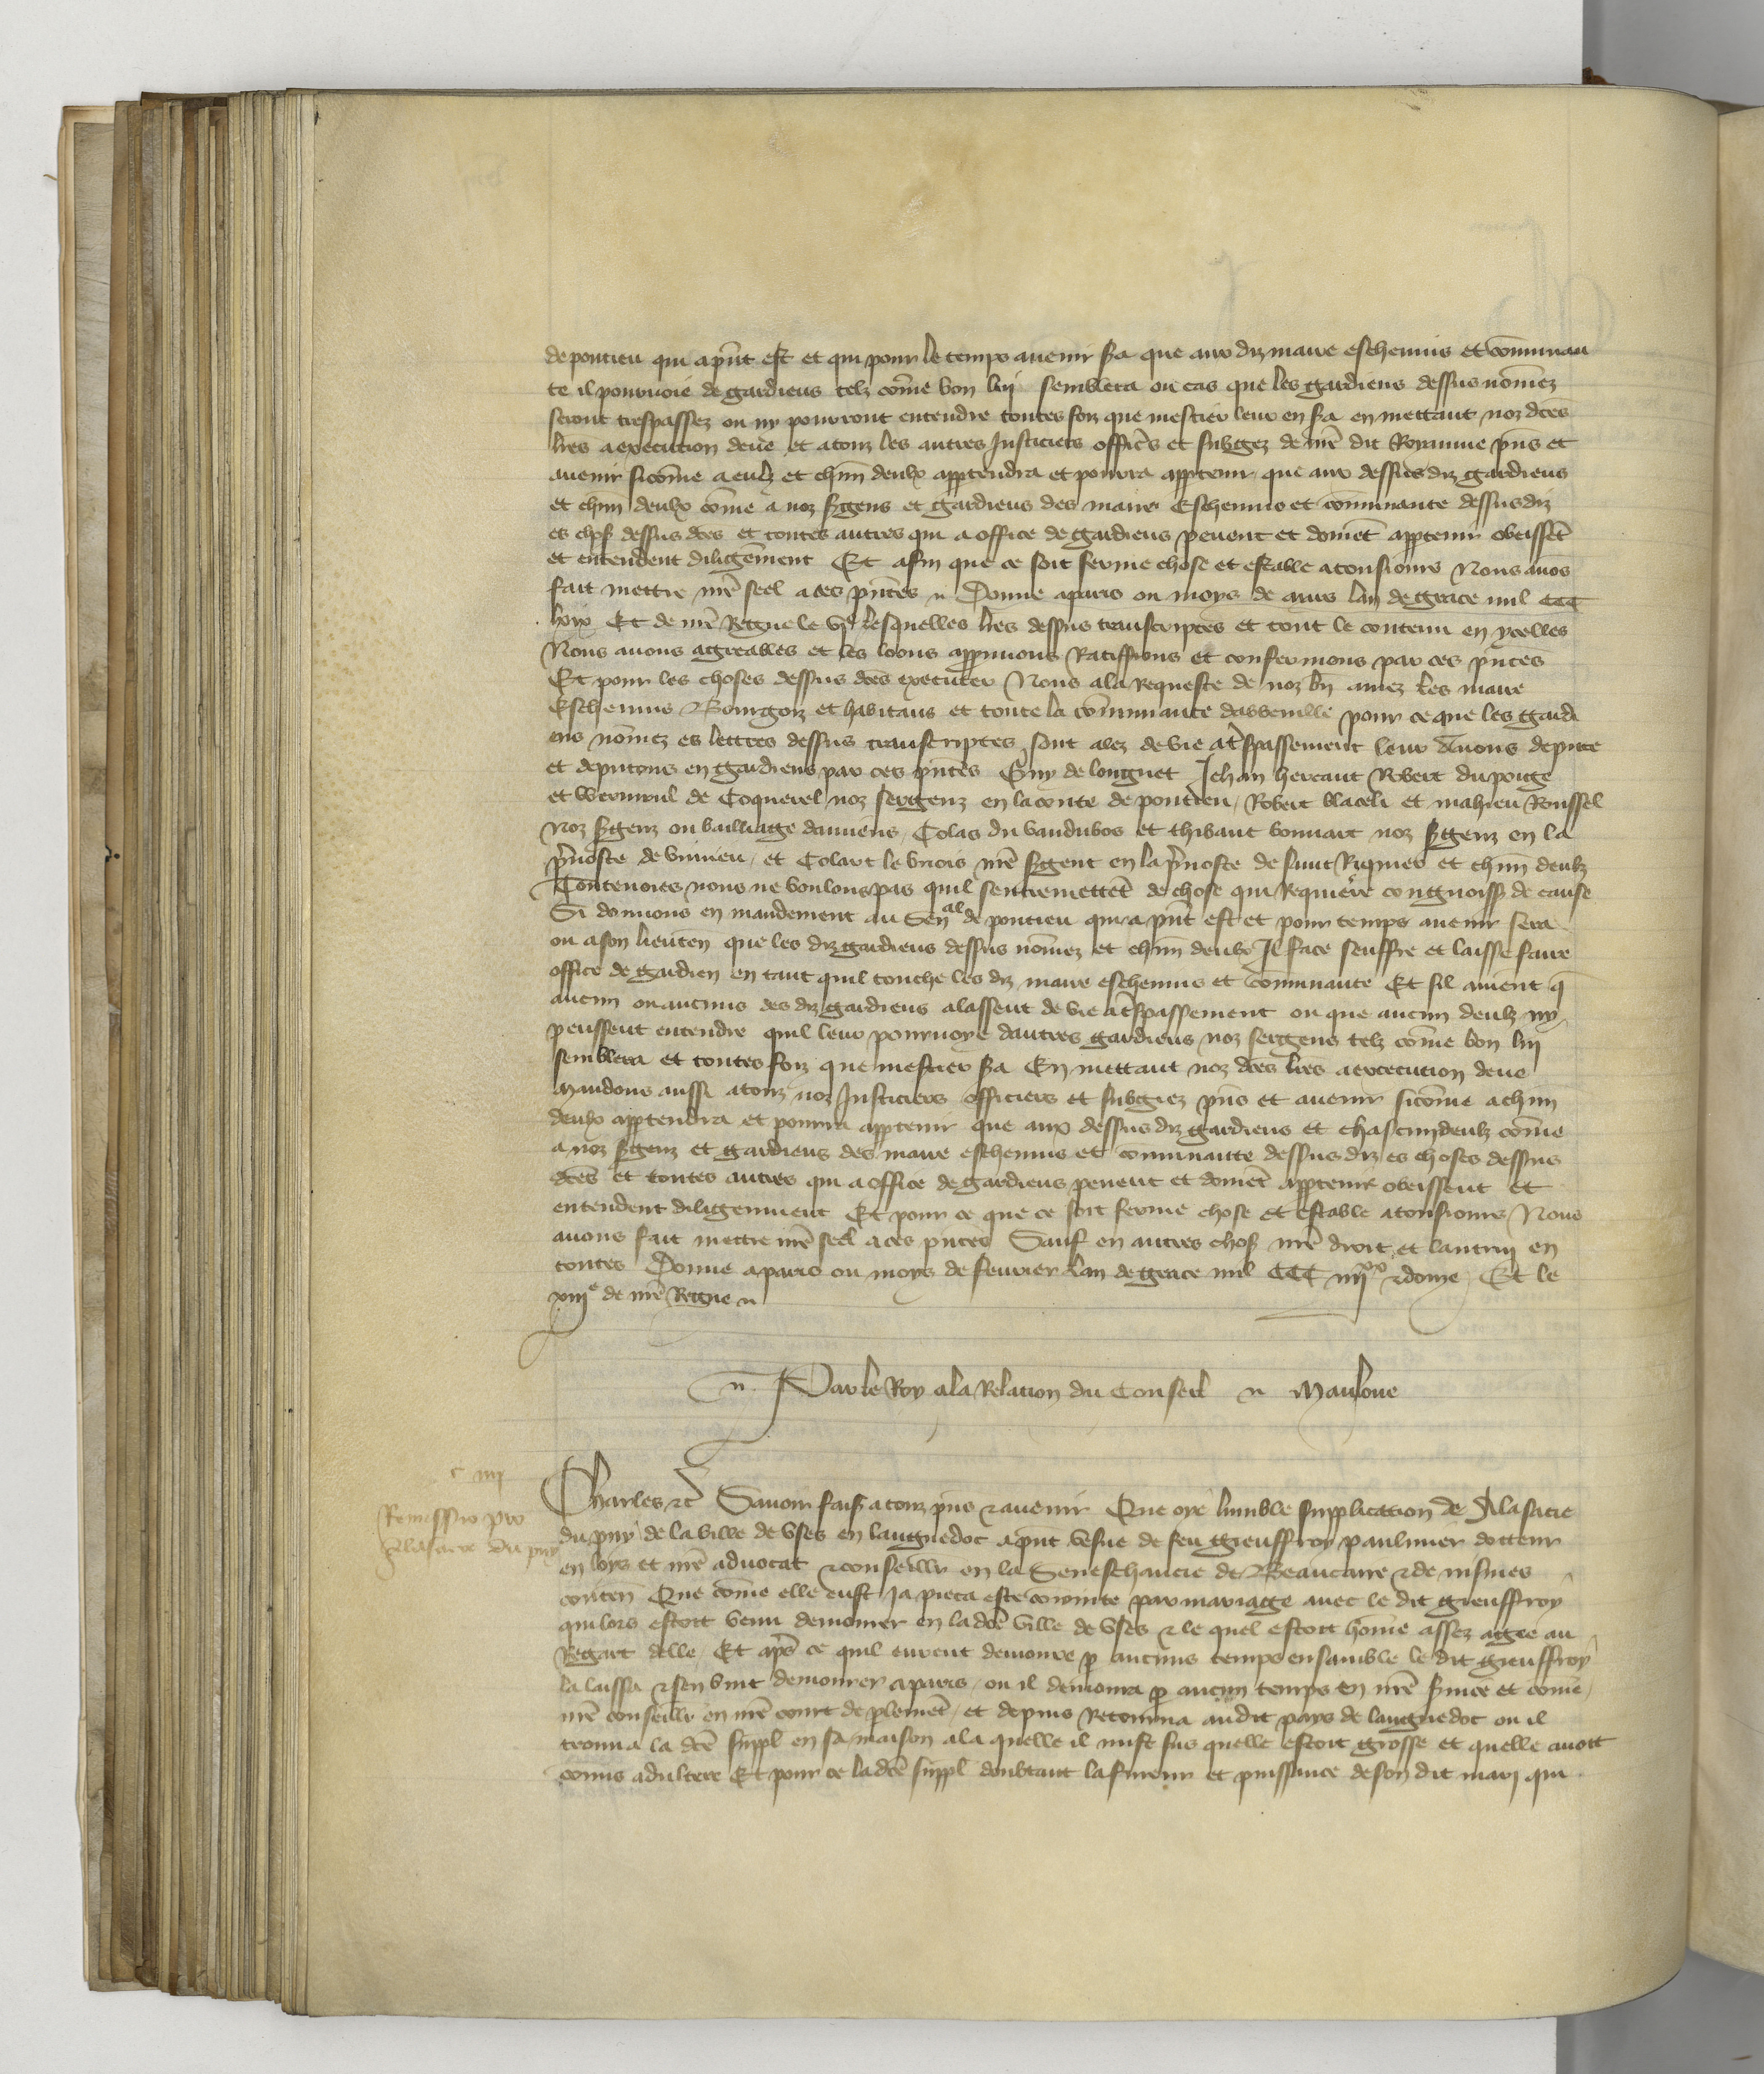 de pontieu qui a pñt est et qui pour le temps auenir sa que aux diz maire escheuins et cōmunau
te il pouruoie de gardiens telz cōme bon lui semblera ou cas que les gardiens dessus nōmez
seront trespassez ou ny pourront entendre toutes foiz que mestier leur en sa en mettant noz dēes
lr̄es a execution deue et a touz les autres Justiciers officrs̄ et subgez de nr̄e dit Royaume pñs et
auenir sicōme a eulz et chūn deulx apptendra et pourra apptenir que aux dessus diz gardiens
et chūn deulx cōme a noz sgens et gardiens des maire Escheuins et cōmunaute dessusdiz
es chos̄ dessus dēes et toutes autres qui a office de gardiens peuent et doiuēt apptenir obeissēt
et entendent diligēment Et afin que ce soit ferme chose et estable a tousiours Nous auōs
fait mettre nr̄e seel a ces pñtes Donne a paris ou moys de mars lan de grace mil CCC
lxix Et de nr̄e Regne le vje Lesquelles lr̄es dessus transcriptes et tout le contenu en ycelles
Nous auons aggreables et les loons appuuons Ratiffions et confermons par ces pñtes
Et pour les choses dessus dēes executer Nous a la Requeste de noz bñ amez les maire
Escheuins Bourgois et habitans et toute la cōmunaute dabbeuille pour ce que les gardi
ens nōmez es lettres dessus transcriptes sont alez de vie a tr̄spassement leur Auons depute
et deputons en gardiens par ces pñtes Guy de longuet Jehan hereaut Robert du ponge
et Wermiul de Coquerel noz sergenz en la conte de pontieu, Robert blaceli et mahieu Roussel
Noz sgenz ou bailliage damiens, Colas du vaudubos et thibaut bonnart noz sgenz en la
p̄uoste de vimieu, et Colart le vrois nr̄e sgent en la p̄uoste de saint Riquier et chūn deulz
Toutenoies nous ne voulons pas quil sentremettēt de chose qui Requiere congnoiss̄ de cause
Si donnons en mandement au Senal de pontieu qui a pñt est et pour temps auenir sera
ou a son lieuten que les diz gardiens dessus nōmez et chūn deulx Il face seuffre et laisse faire
office de gardien en tant quil touche les diz maire escheuins et cōmunaute Et sil auient q̄
aucun ou aucuns des diz gardiens alassent de vie a tr̄spassement ou que aucun deulz ny
peussent entendre quil leur pouruoye dautres gardiens noz sergens telz cōme bon lui
semblera et toutes foiz que mestier sa En mettant noz dēes lr̄es a execution deue
Mandons aussi a touz noz Justiciers officiers et subgiez pñs et auenir sicōme a chūn
deulx apptendra et pourra apptenir que aux dessus diz gardiens et chascun deulz cōme
a noz sgenz et gardiens des maire escheuins et cōmunaute dessus diz es choses dessus
dēes et toutes autres qui a office de gardiens peuent et doiuēt apptenir obeissent et
entendent diligemment Et pour ce que ce soit ferme chose et estable a tousiours Nous
auons fait mettre nr̄e seel a ces pñtes Sauf en autres chos̄ nr̄e droit et lautruy en
toutes Donne a paris ou moys de feurier Lan de grace mil CCC iiijxx & douze, Et le
xiije de nr̄e Regne
Par le Roy a la Relation du Conseil Mauloue
c iiij
Remissio pro
Alasacie du puy
Charles &c Sauoir faiss̄ a touz pñs & auenir Que oye lumble supplication de Alasacie
du puy de la ville de vses en languedoc a pñt vesue de feu gieuffroy paulmier docteur
en loys et nr̄e aduocat & conseillr en la Seneschaucie de Beaucaire & de nismes
conten̄ Que cōme elle eust Ja pieca este coniointe par mariage auec le dit gieuffroy
qui lors estoit venu demourer en la dc̄e ville de vses & le quel estoit hōme assez aagie au
Regart delle, Et ap̄s ce quil eurent demoure p̄ aucuns temps ensamble le dit gieuffroy
la laissa & sen vint demourer a paris, ou il demoura p̄ aucun temps en nr̄e suice et cōme
nr̄e conseillr en nr̄e court de plemēt, et depuis Retourna au dit pays de languedoc ou il
trouua la dc̄e suppl en sa maison a la quelle il mist sus quelle estoit grosse et quelle auoit
cōmis adultere Et pour ce la dc̄e suppl doubtant la fureur et puissance de son dit mary qui